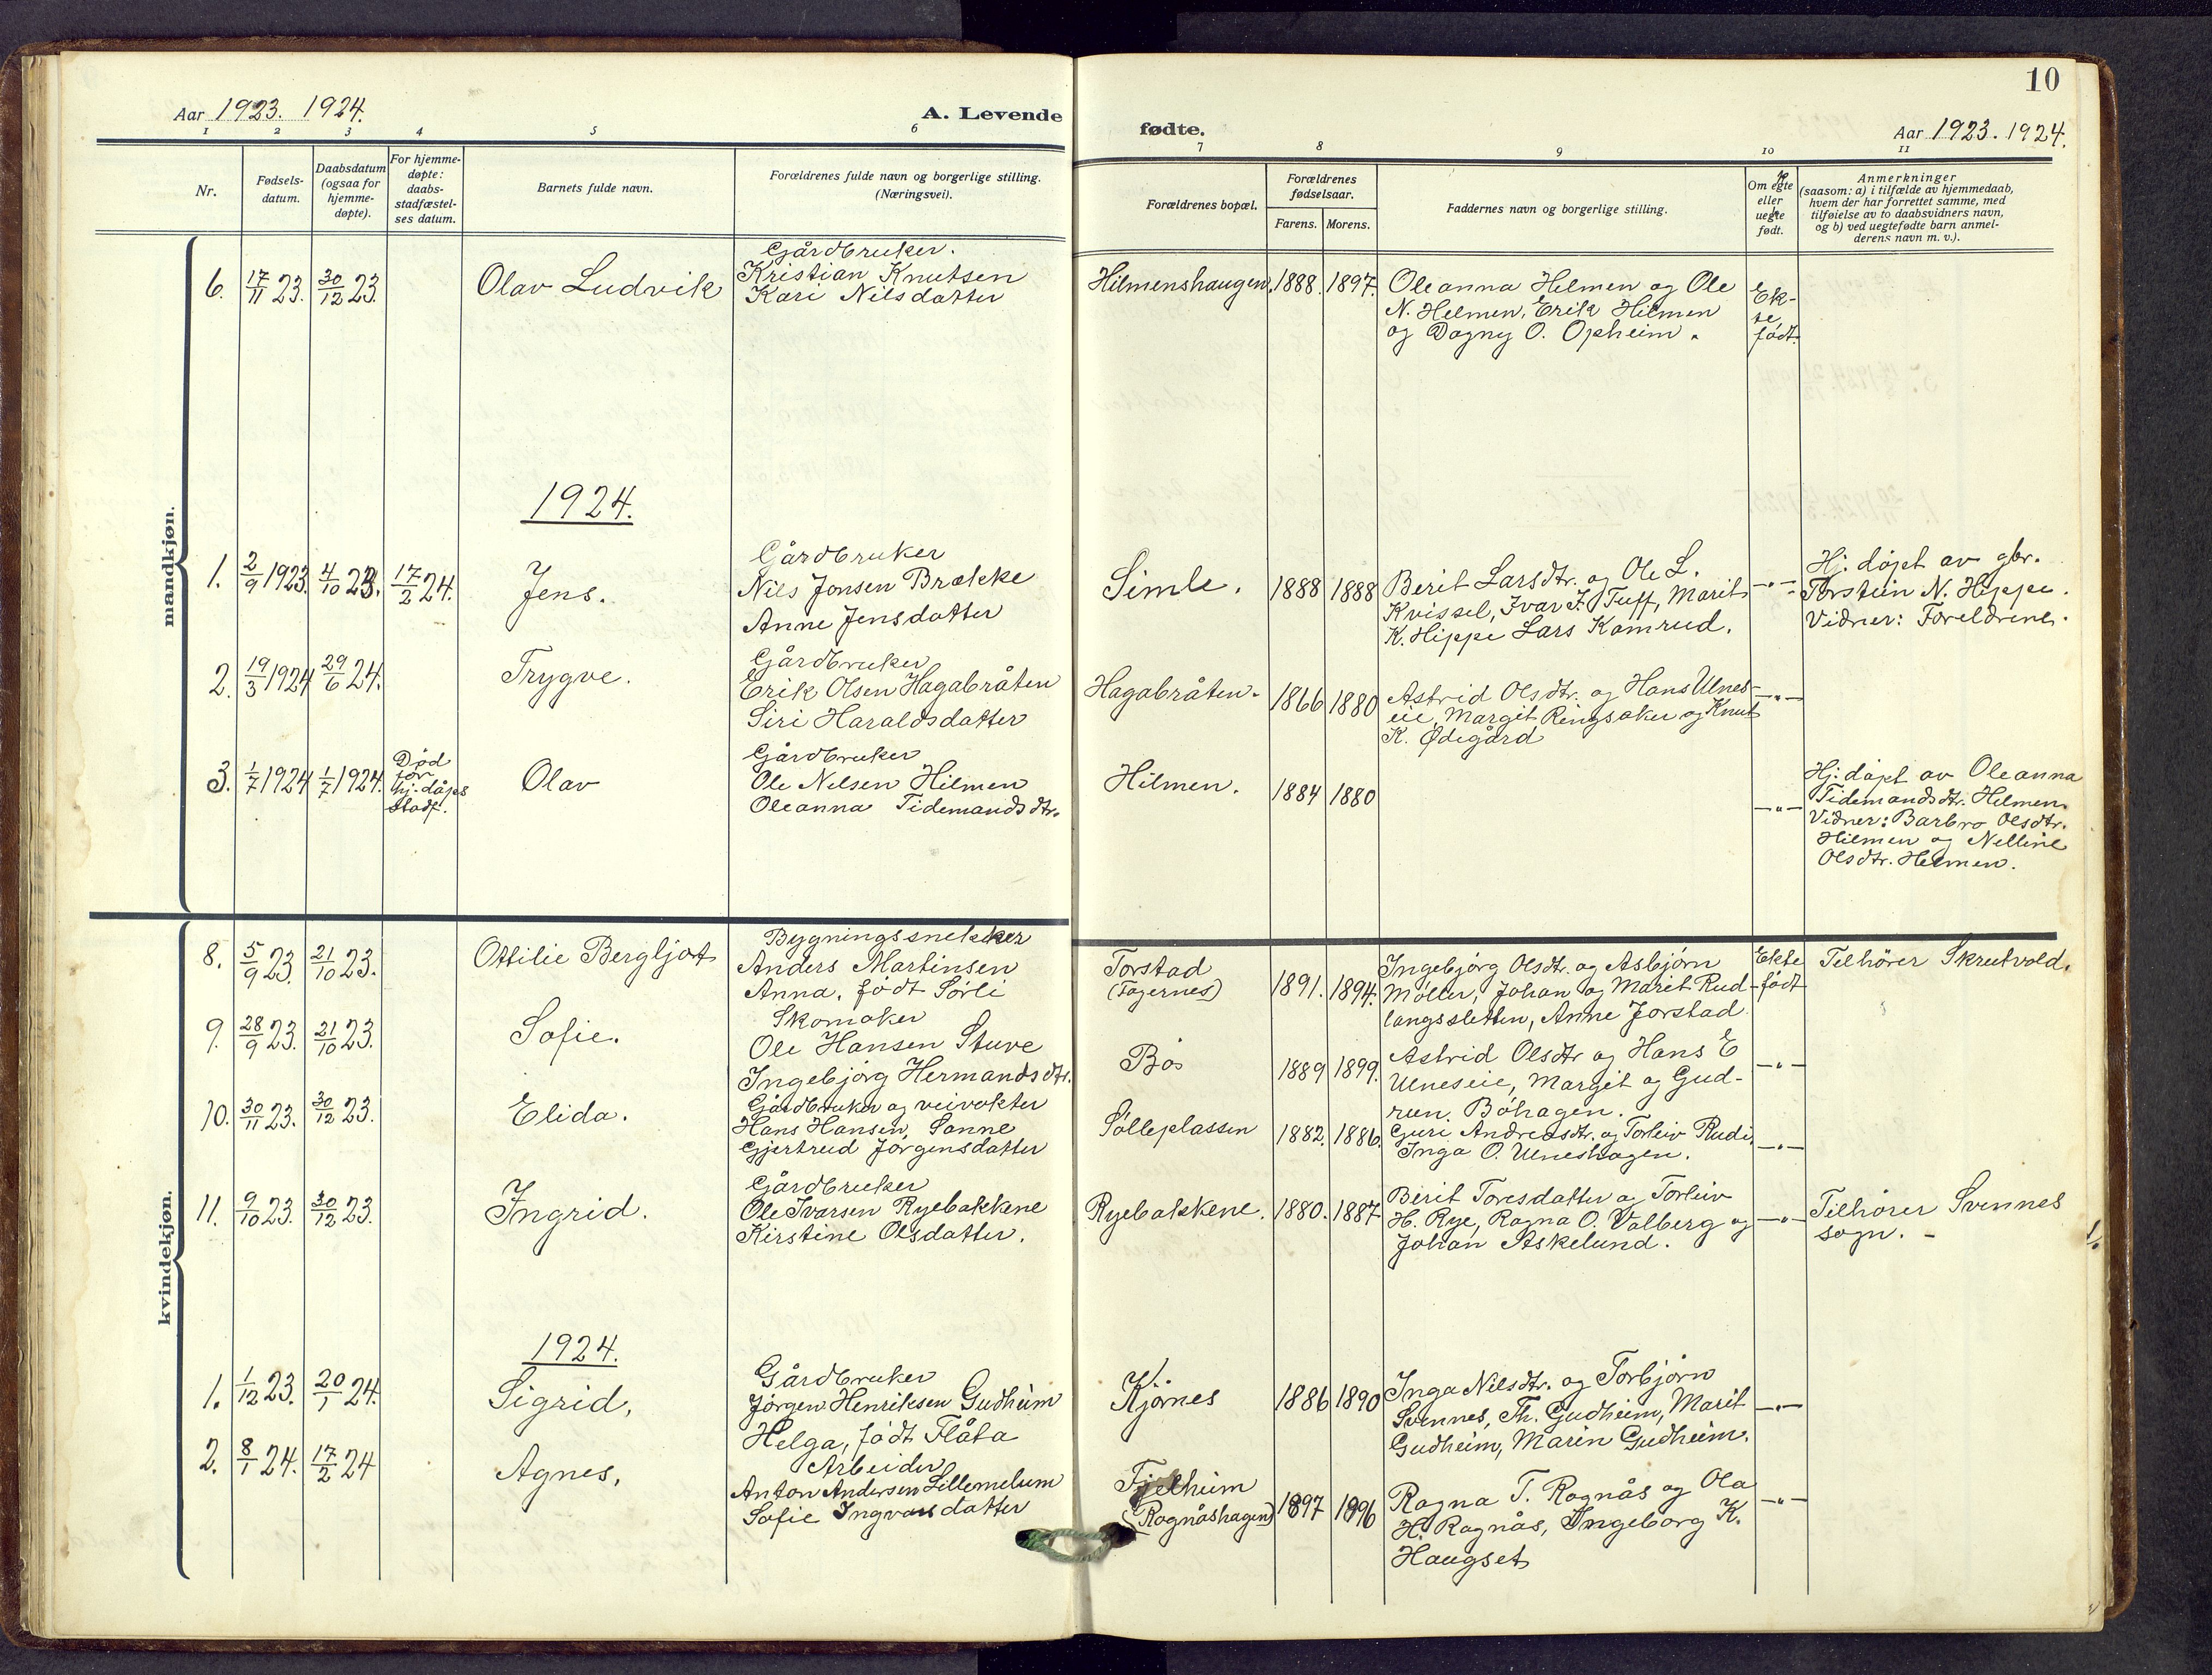 10
Aar 1923. 1924.
A. Levende
fødte.
Aar 1923. 1924.
1 2 3 4 5 6 7 8 9 10 11
Nr.
Fødsels-
datum.
Daabsdatum
(ogsaa for
hjemme-
døpte).
For hjemme-
døpte:
daabs-
stadfæstel-
ses datum.
Barnets fulde navn.
Forældrenes fulde navn og borgerlige stilling.
(Næringsvei).
Forældrenes bopæl.
Forældrenes
fødselsaar.
Farens. Morens.
Faddernes navn og borgerlige stilling.
Om egte
eller
uegte
født.
Anmerkninger
(saasom: a) i tilfælde av hjemmedaab,
hvem der har forrettet samme, med
tilføielse av to daabsvidners navn,
og b) ved uegtefødte barn anmel-
derens navn m. v.).
mandkjøn.
6. 17/11 23. 30/12 23. Olav Ludvik
Gårdbruker.
Kristian Knutsen
Kari Nilsdatter
Hilmenshaugen. 1888. 1897.
Oleanna Hilmen og Ole
N. Helmen, Erik Hilmen
og Dagny O. Opheim.
Ek-
te
født.
1924.
1. 2/9 1923. 4/10 23. 17/2 24. Jens.
Gårdbruker
Nils Jonsen Brække
Anne Jensdatter
Simle. 1888 1888
Berit Larsdtr. og Ole L.
Kvissel, Ivar J. Tuff, Marit
K. Hippe Lars Kamrud.
-"-
Hj. døpt av gbr.
Torstein N. Hippe.
Vidner: Foreldrene.
2. 19/3 1924 29/6 24. Trygve.
Gårdbruker
Erik Olsen Hagabråten
Siri Haraldsdatter
Hagabråten. 1866 1880
Astrid Olsdtr. og Hans Ulnes-
eie, Margit Ringsaker og Knut
K. Ødegård
-"-
3. 1/7 1924 1/7 1924.
Død
før
hj. dåps
stadf.
Olav
Gårdbruker
Ole Nilsen Hilmen
Oleanna Tidemandsdtr.
Hilmen. 1884 1880
-"-
Hj. døpt av Oleanna
Tidemandsdtr. Hilmen.
Vidner: Barbro Olsdtr.
Hilmen og Nelline
Olsdtr. Hilmen.
kvindekjøn.
8. 5/9 23. 21/10 23. Ottilie Bergljot
Bygningssnekker
Anders Martinsen
Anna, født Sørli
Torstad
(Fagernes)
1891. 1894.
Ingebjørg Olsdtr. og Asbjørn
Møller, Johan og Marit Rud-
langssletten, Anne Jorstad
Ekte
født
Tilhører Skrutvold.
9. 28/9 23. 21/10 23. Sofie.
Skomaker
Ole Hansen Stuve
Ingebjørg Hermandsdtr.
Bøs 1889 1899.
Astrid Olsdtr og Hans E
Ulneseie, Margit og Gud-
run Bøhagen.
-"-
10. 30/11 23. 30/12 23. Elida.
Gårdbruker og veivokter
Hans Hansen Sanne
Gjertrud Jørgensdatter
Sølleplassen 1882. 1886.
Guri Andreasdtr. og Torleiv Rudi,
Inga O. Ulneshagen.
-"-
11. 9/10 23. 30/12 23. Ingrid.
Gårdbruker
Ole Ivarsen Ryebakkene
Kirstine Olsdatter.
Ryebakkene. 1880. 1887
Berit Toresdatter og Torleiv
H. Rye, Ragna O. Valberg og
Johan Askelund.
-"-
Tilhører Svennes
sogn. -
1924.
1. 1/12 23. 20/1 24. Sigrid,
Gårdbruker
Jørgen Henriksen Gudheim
Helga, født Flåta
Kjørnes 1886 1890
Inga Nilsdtr. og Torbjørn
Svennes, Th. Gudheim, Marit
Gudheim, Marin Gudheim.
-"-
2. 8/1 24. 17/2 24 Agnes,
Arbeider
Anton Andersen Lillemelum
Sofie Ingvarsdatter
Fjelheim
(Rognåshagen)
1897 1896
Ragna T. Rognås og Ola
H. Rognås, Ingeborg K.
Haugset
-"-